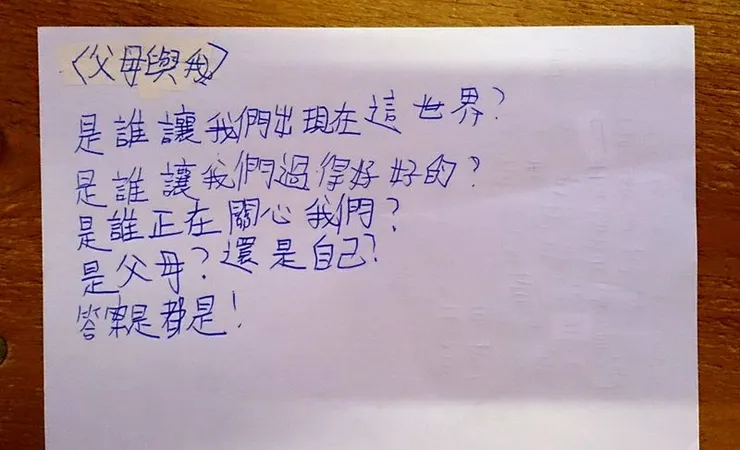 〈父母與我〉
是誰讓我們出現在這世界?
是誰讓我們過得好好的?
是誰正在關心我們?
是父母?還是自己?
答案是都是!